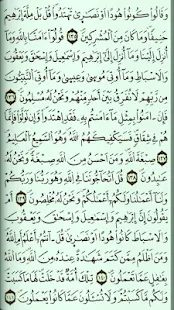 وَقَالُوا۟ كُونُوا۟ هُودًا أَوْ نَصَٰرَىٰ تَهْتَدُوا۟ قُلْ بَلْ مِلَّةَ إِبْرَٰهِيمَ
حَنِيفًا وَمَا كَانَ مِنَ ٱلْمُشْرِكِينَ ١٣٥ قُولُوٓا۟ ءَامَنَّا بِٱللَّهِ وَمَآ
أُنزِلَ إِلَيْنَا وَمَآ أُنزِلَ إِلَىٰٓ إِبْرَٰهِيمَ وَإِسْمَٰعِيلَ وَإِسْحَٰقَ وَيَعْقُوبَ
وَٱلْأَسْبَاطِ وَمَآ أُوتِىَ مُوسَىٰ وَعِيسَىٰ وَمَآ أُوتِىَ ٱلنَّبِيُّونَ
مِن رَّبِّهِمْ لَا نُفَرِّقُ بَيْنَ أَحَدٍ مِّنْهُمْ وَنَحْنُ لَهُۥ مُسْلِمُونَ ١٣٦
فَإِنْ ءَامَنُوا۟ بِمِثْلِ مَآ ءَامَنتُم بِهِۦ فَقَدِ ٱهْتَدَوا۟ وَّإِن تَوَلَّوْا۟ فَإِنَّمَا
هُمْ فِى شِقَاقٍ فَسَيَكْفِيكَهُمُ ٱللَّهُ وَهُوَ ٱلسَّمِيعُ ٱلْعَلِيمُ ١٣٧
صِبْغَةَ ٱللَّهِ وَمَنْ أَحْسَنُ مِنَ ٱللَّهِ صِبْغَةً وَنَحْنُ لَهُۥ
عَٰبِدُونَ ١٣٨ قُلْ أَتُحَآجُّونَنَا فِى ٱللَّهِ وَهُوَ رَبُّنَا وَرَبُّكُمْ
وَلَنَآ أَعْمَٰلُنَا وَلَكُمْ أَعْمَٰلُكُمْ وَنَحْنُ لَهُۥ مُخْلِصُونَ ١٣٩ أَمْ
يَقُولُونَ إِنَّ إِبْرَٰهِيمَ وَإِسْمَٰعِيلَ وَإِسْحَٰقَ وَيَعْقُوبَ
وَٱلْأَسْبَاطَ كَانُوا۟ هُودًا أَوْ نَصَٰرَىٰ قُلْ ءَأَنتُمْ أَعْلَمُ أَمِ ٱللَّهُ
وَمَنْ أَظْلَمُ مِمَّن كَتَمَ شَهَٰدَةً عِندَهُۥ مِنَ ٱللَّهِ وَمَا ٱللَّهُ
بِغَٰفِلٍ عَمَّا تَعْمَلُونَ ١٤٠ تِلْكَ أُمَّةٌ قَدْ خَلَتْ لَهَا مَا كَسَبَتْ
وَلَكُم مَّا كَسَبْتُمْ وَلَا تُسْـَٔلُونَ عَمَّا كَانُوا۟ يَعْمَلُونَ ١٤١